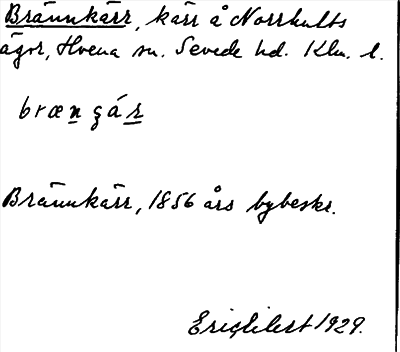 Brännkärr, kärr å Norrhults
ägor, Hvena sn. Sevede hd. Klm. l.
brængár
Brännkärr, 1856 års bybeskr.
1929.